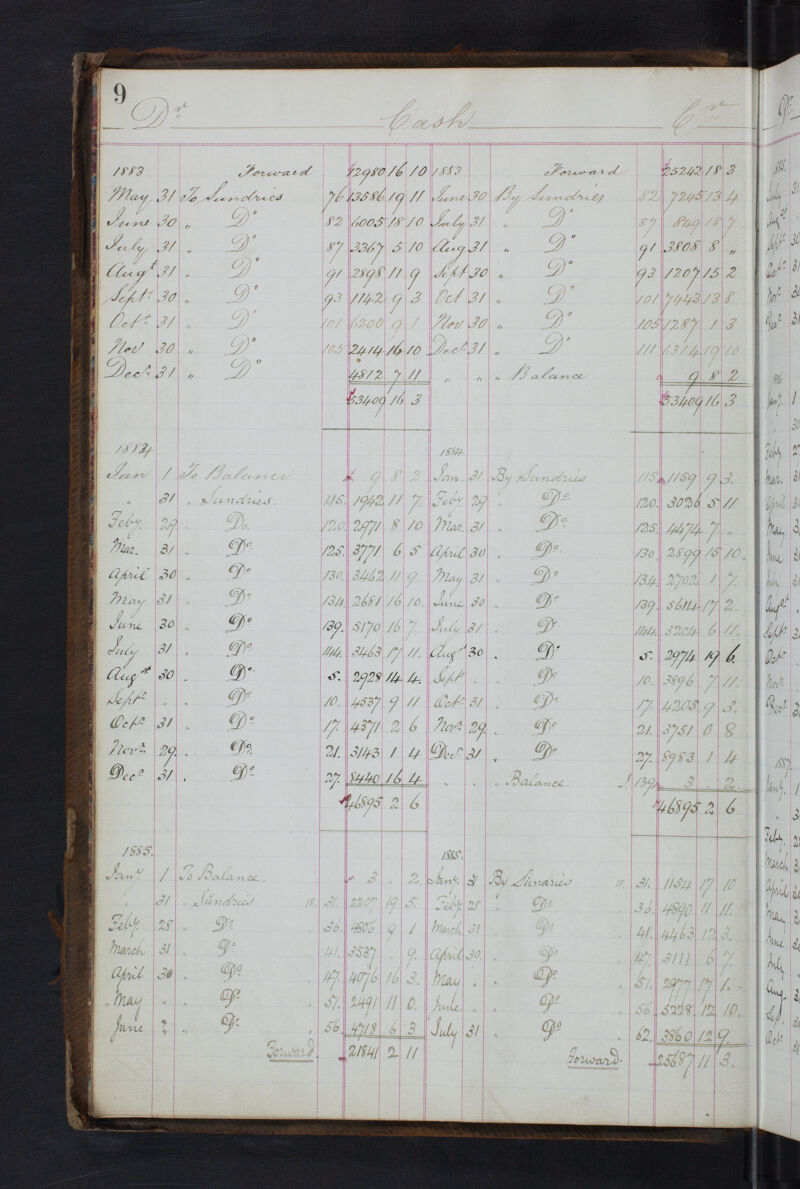 9
Dr Cash Cr
1883 Forward 12980 16 10 1883 Forward 25242 18 3
May 31 To Sundries 76 13586 19 11 June 30 By Sundries 82 7245 13 4
June 30 " Do 82 6005 18 10 July 31 " Do 87 849 18 7
July 31 " Do 87 3367 5 10 Aug 31 " Do 91 3808 8 "
Augt 31 " Do 91 2898 11 9 Sept 30 " Do 93 1207 15 2
Sept. 30 " Do 93 1142 9 3 Oct 31 " Do 101 7443 13 8
Octr 31 " Do 101 6200 9 1 Nov 30 " Do 105 1287 1 3
Nov 30 " Do 105 2414 16 10 Decr 31 " Do 111 6314 19 10
Decr 31 " Do 4812 7 11 " " " Balance 9 8 2
53409 16 3 53409 16 3
1884 1884
Jan 1 To Balance 9 8 2 Jan. 31 By Sundries 115 1159 9 3
" 31 " Sundries 115. 1942 11 7. Feby 29 " Do 120. 3036 5 11
Feby. 29 " Do. 120. 2971 8 10 Mar. 31 " Do 125. 4474 7 "
Mar. 31 " Do 125. 3771 6 5 April 30 " Do. 130. 2899 15 10.
April 30 " Do 130. 3462 11 9. May 31 " Do 134. 2702 1 7.
May 31 . Do 134. 2681 16 10. June 30 . Do 139. 5614 17 2.
June 30 . Do 139. 5170 16 7. July 31 . Do 144. 3204 6 11.
July 31 . Do 144. 3463 17 11. Augt 30 . Do 5. 2974 19 6.
Augst 30 . Do 5. 2928 14 4. Sept . . Do 10. 3896 7 11.
Septr . . Do 10. 4537 9 11 Octr 31 . Do 17. 4205 9 3.
Octr 31 . Do 17. 4371 2 6 Novr 29. . Do 21. 3751 0 8
Novr 29. . Do. 21. 3143 1 4 Decr 31 " Do 27. 8983 1 4
Decr 31 . Do 27. 8440 16 4 . . . Balance. 139 3 . 2.
46895 2 6 46895 2 6
1885. 1885.
Jany. 1 To Balance. 3 . 2. Jany. 31 By Sundries 31. 1154 17 10
" 31 " Sundries 31. 2207 19 5. Feby. 28 " Do 36. 4890 11 11.
Feby. 28 " Do 36. 4806 9 1 March 31 Do 41. 4463 12 3.
March 31 . Do 41. 3537 . 9. April 30 . Do 47. 3111 6 7.
April 30 . Do 47. 4076 16 3. May . . Do 51. 2977 17 1.
May " . Do 51. 2491 11 0. June . . Do 56. 5228. 12 10.
June " " Do 56. 4718 6 3 July 31 . Do 62. 3860 12 9.
Forward. 21841 2 11 Forward. 25687 11 3.